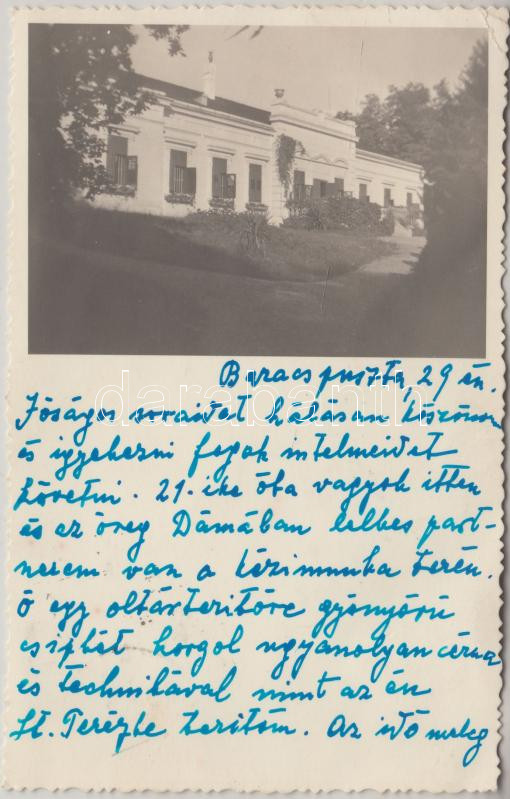 Baracspuszta, 29 én.
Jóságos soraidat hálásan köszönöm
és igyekezni fogok intelmeidet
követni. 21.ike óta vagyok itten
és az öreg Dámában lelkes part-
nerem van a kézimunka terén.
Ő egy oltárterítőre gyönyörű
csipkét horgol ugyanolyan cérna
és technikával mint az én
St. Terézke terítőm. Az idő meleg
darabanth